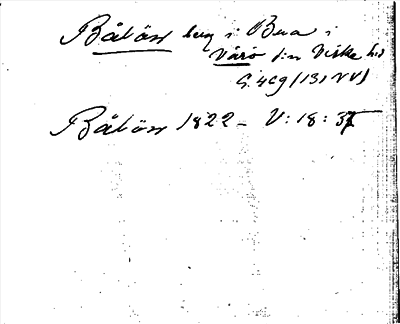 Bålön bug i Bua i
Värö sn Viske hd
G. 4 c g (131 VV)
Bålön 1822 – V: 18: 37